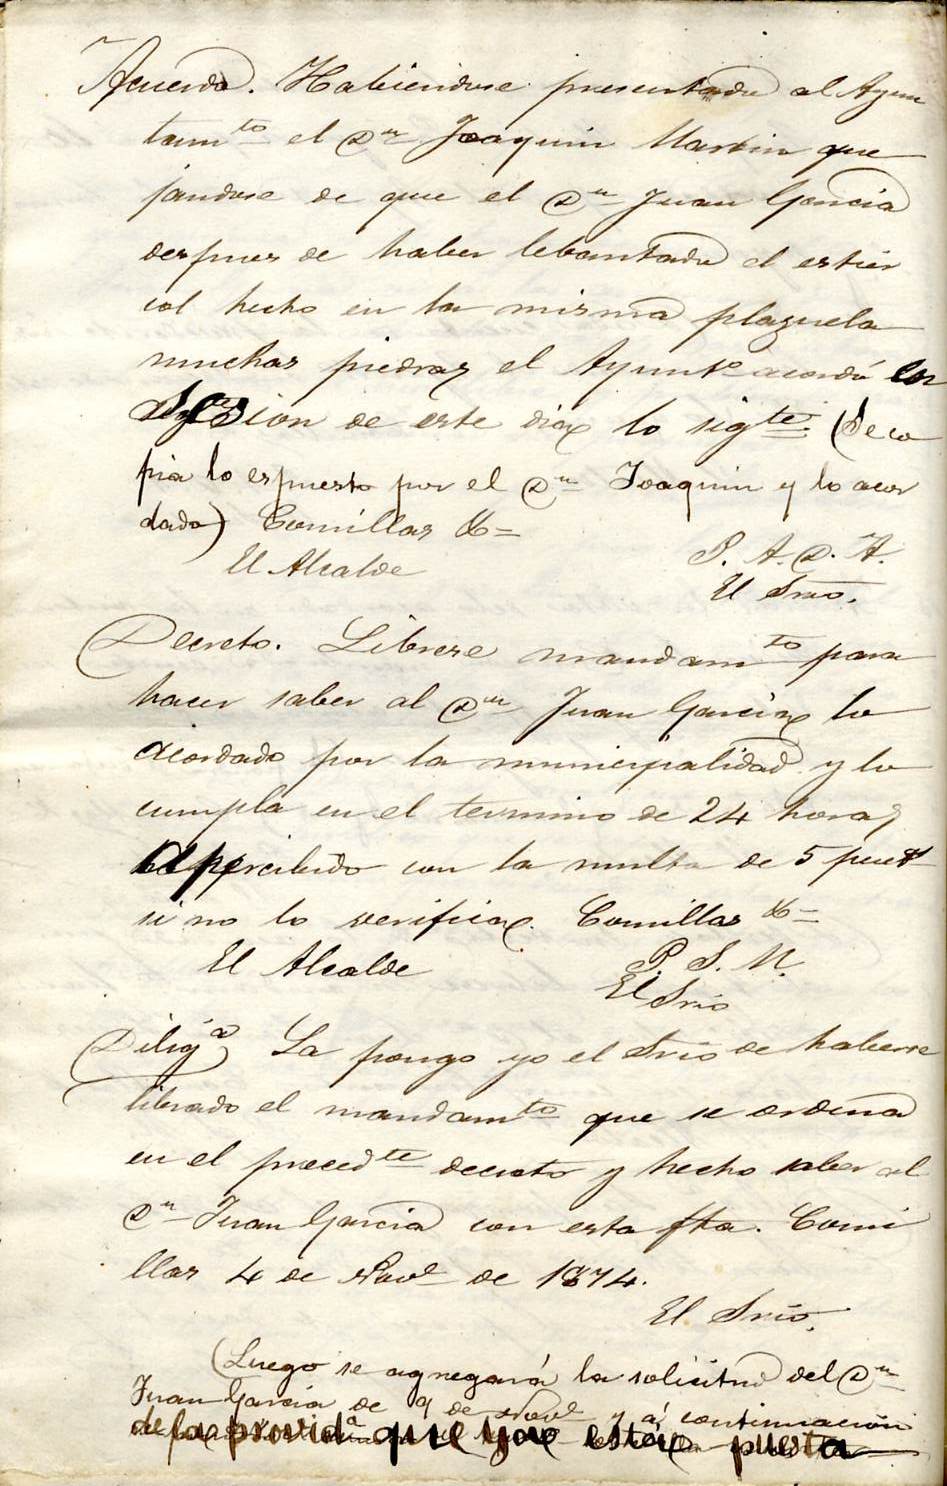 Acuerdo. Habiendose presentado al Ayun
tamto el Dn Joaquin Martin que
jandose de que el Dn Juan Garcia
despues de haber lebantado el estier
col hecho en la misma plazuela
muchas piedras el Ayunto acordó en
sesion de este dia lo sigte. (Se co
pia lo espuesto por el Dn Joaquin y lo acor
dado) Comillas &=
El Alcalde P. A. D. A.
El Srio.
Decreto. Librese mandamto para
hacer saber al Dn Juan Garcia lo
acordado por la municipalidad y lo
cumpla en el termino de 24 horas
apercibido con la multa de 5 peset
si no lo verifica. Comillas &=
El Alcalde P. S. M.
El Srio
Diliga La pongo yo el Srio de haberse
librado el mandamto que se ordena
en el precedte decreto y hecho saber al
Dn Juan Garcia con esta fha. Comi
llas 4 de Nove de 1874.
El Srio.
(Luego se agregará la solicitud del Dn
Juan Garcia de 9 de Nove y á continuacion
de la provida que ya esta puesta